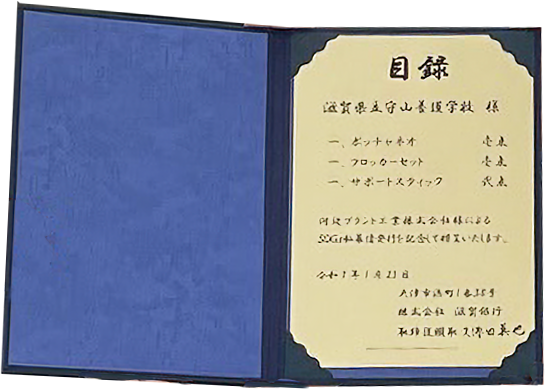 目録
滋賀県立守山養護学校 様
一、ボッチャネオ 壱点
一、フロッカーセット 壱点
一、サポートスティック 弐点
プラント工業株式会社様による
SDGs私募債発行を記念して贈呈いたします。
令和7年1月23日
大津市浜町1番38号
株式会社 滋賀銀行
取締役頭取 久保田真也